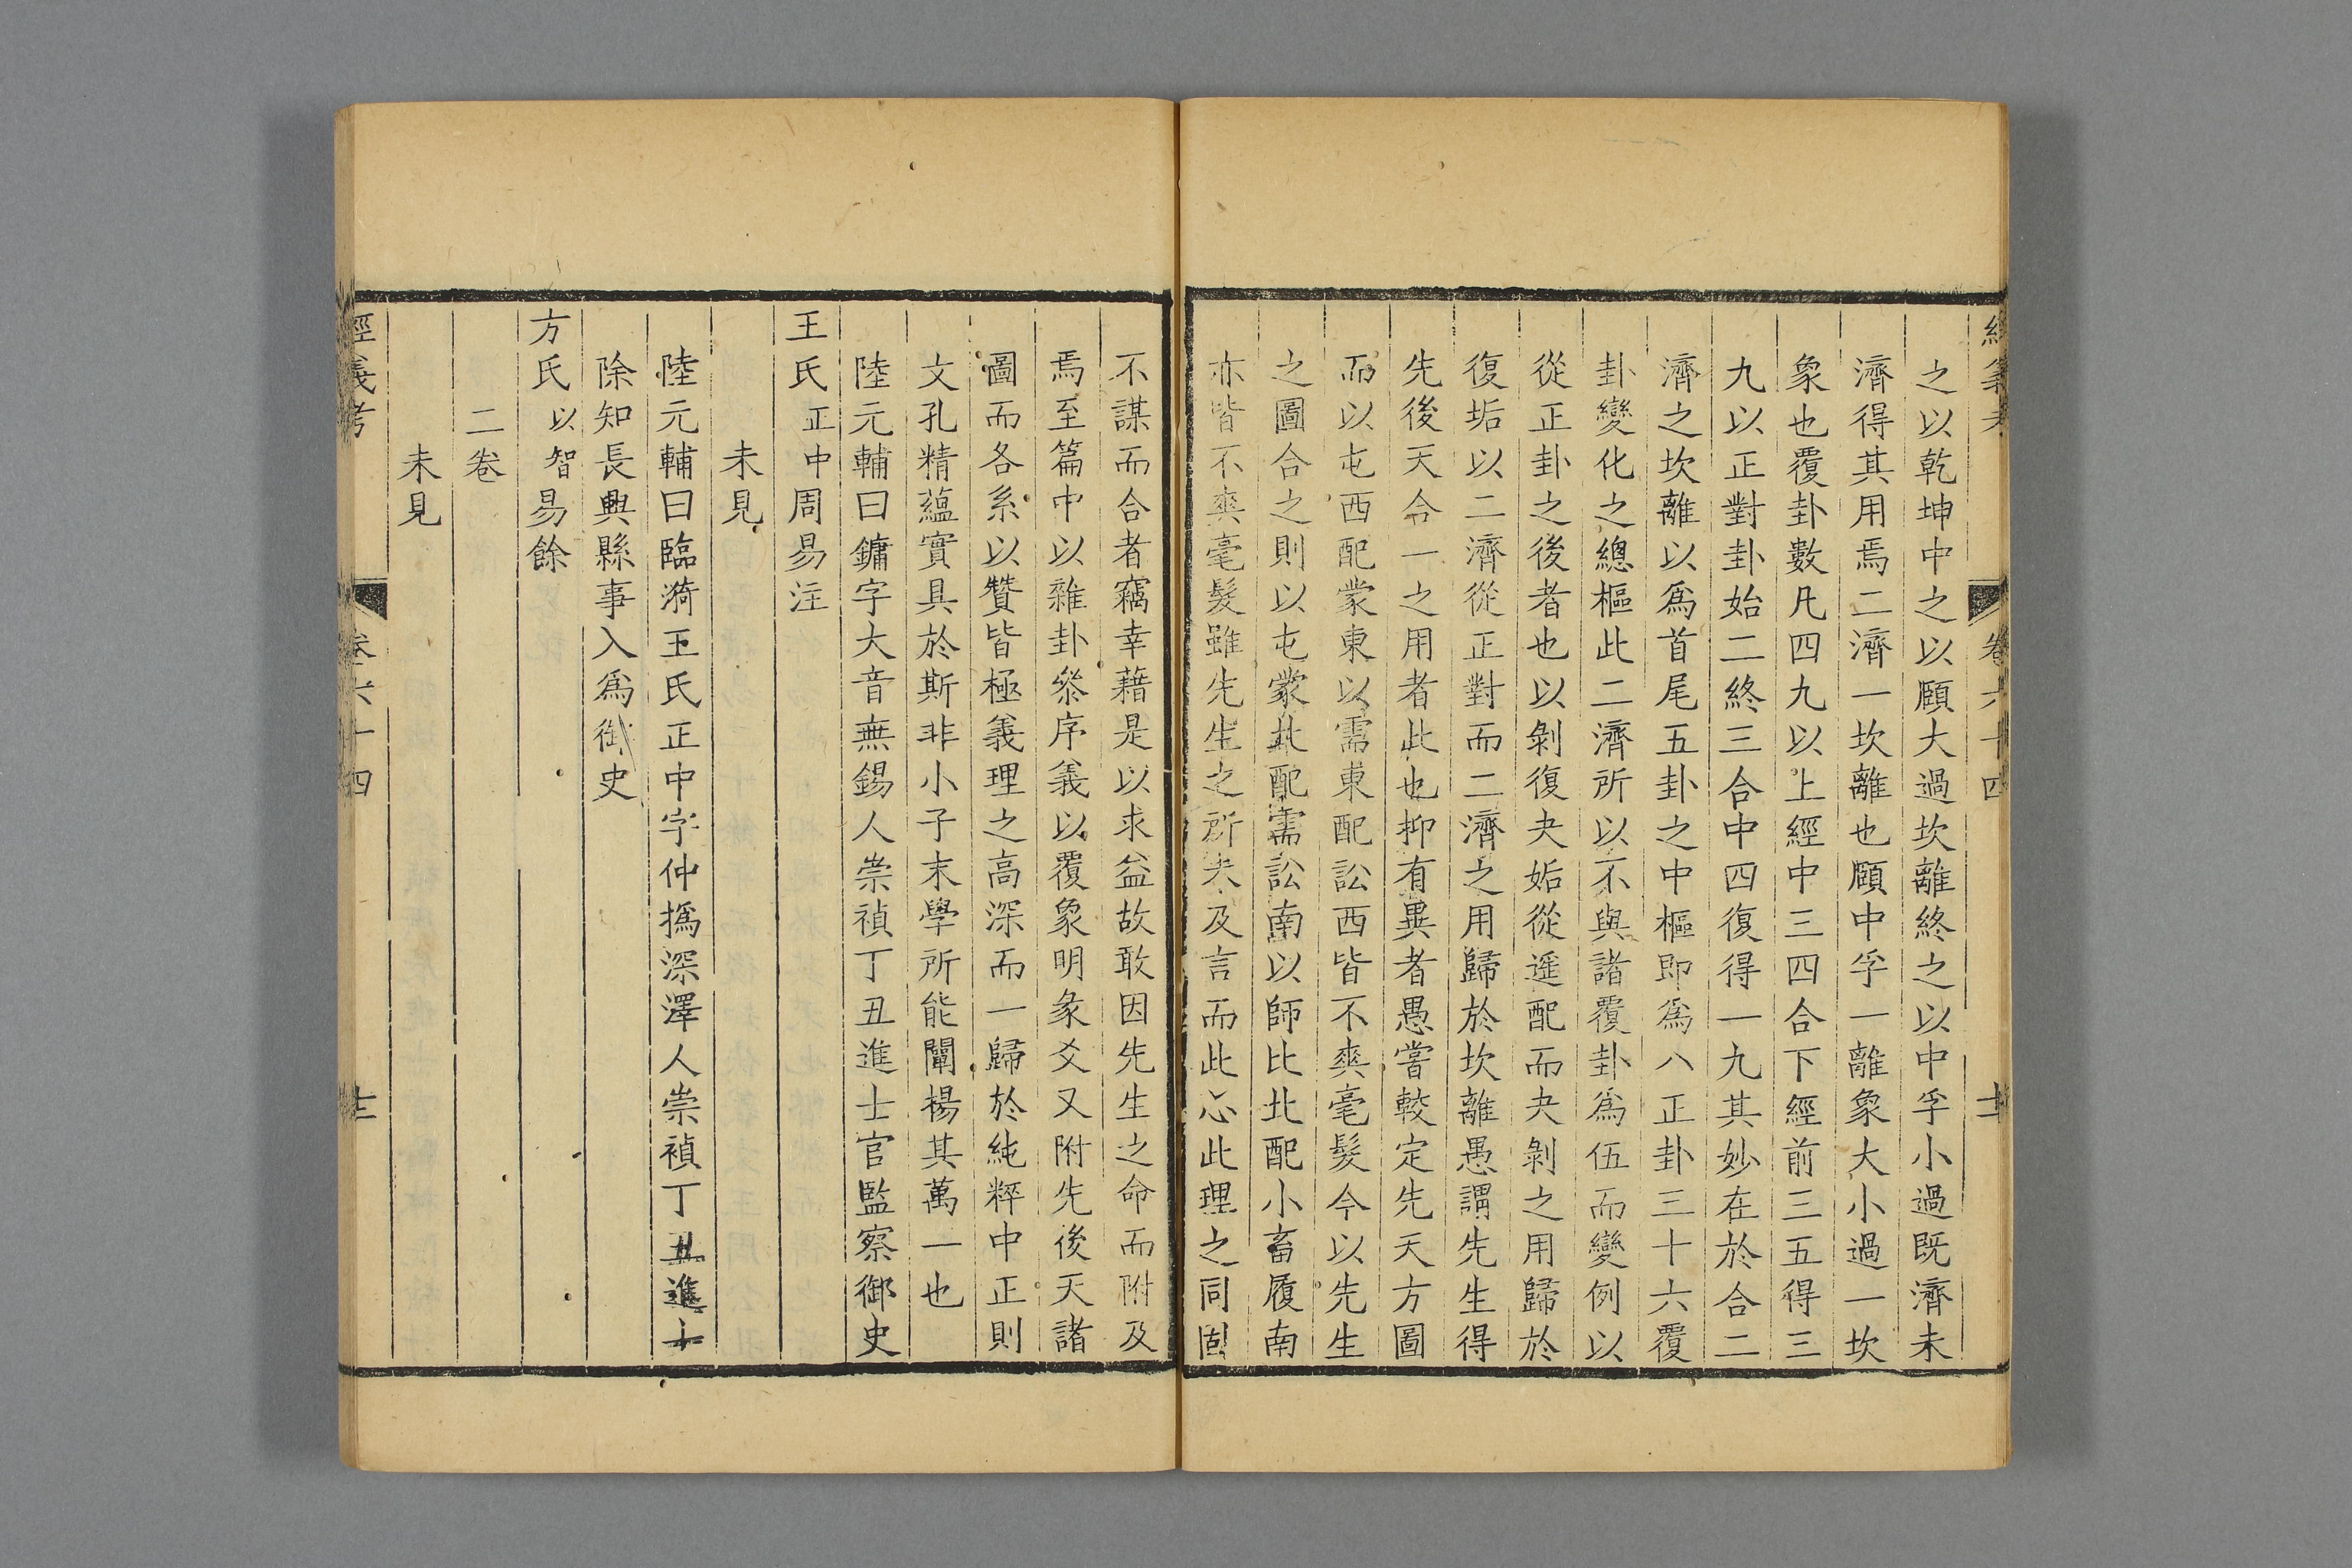 之以乾坤中之以頤大過坎離終之以中孚小過既濟未
濟得其用焉二濟一坎離也頤中孚一離象大小過一坎
象也覆卦數凡四九以上經中三四合下經前三五得三
九以正對卦始二終三合中四復得一九其妙在於合二
濟之坎離以爲首尾五卦之中樞即爲八正卦三十六覆
卦變化之總樞此二濟所以不與諸覆卦爲伍而變例以
從正卦之後者也以剝復夬姤從遥配而夬剝之用歸於
復垢以二濟從正對而二濟之用歸於坎離愚謂先生得
先後天合一之用者此也抑有異者愚嘗較定先天方圖
而以屯西配蒙東以需東配訟西皆不爽毫髮今以先生
之圖合之則以屯蒙北配需訟南以師比北配小畜履南
亦皆不爽毫髮雖先生之所未及言而此心此理之同固
不謀而合者竊幸藉是以求益故敢因先生之命而附及
焉至篇中以雜卦叅序義以覆象明彖爻又附先後天諸
圖而各系以贊皆極義理之高深而一歸於純粹中正則
文孔精蘊實具於斯非小子末學所能闡楊其萬一也
陸元輔曰鏞字大音無錫人崇禎丁丑進士官監察御史
王氏正中周易注
未見
陸元輔曰臨漪王氏正中字仲撝深澤人崇禎丁丑進士
除知長興縣事入爲御史
方氏以智易餘
二卷
未見
經義考 卷六十四 十三